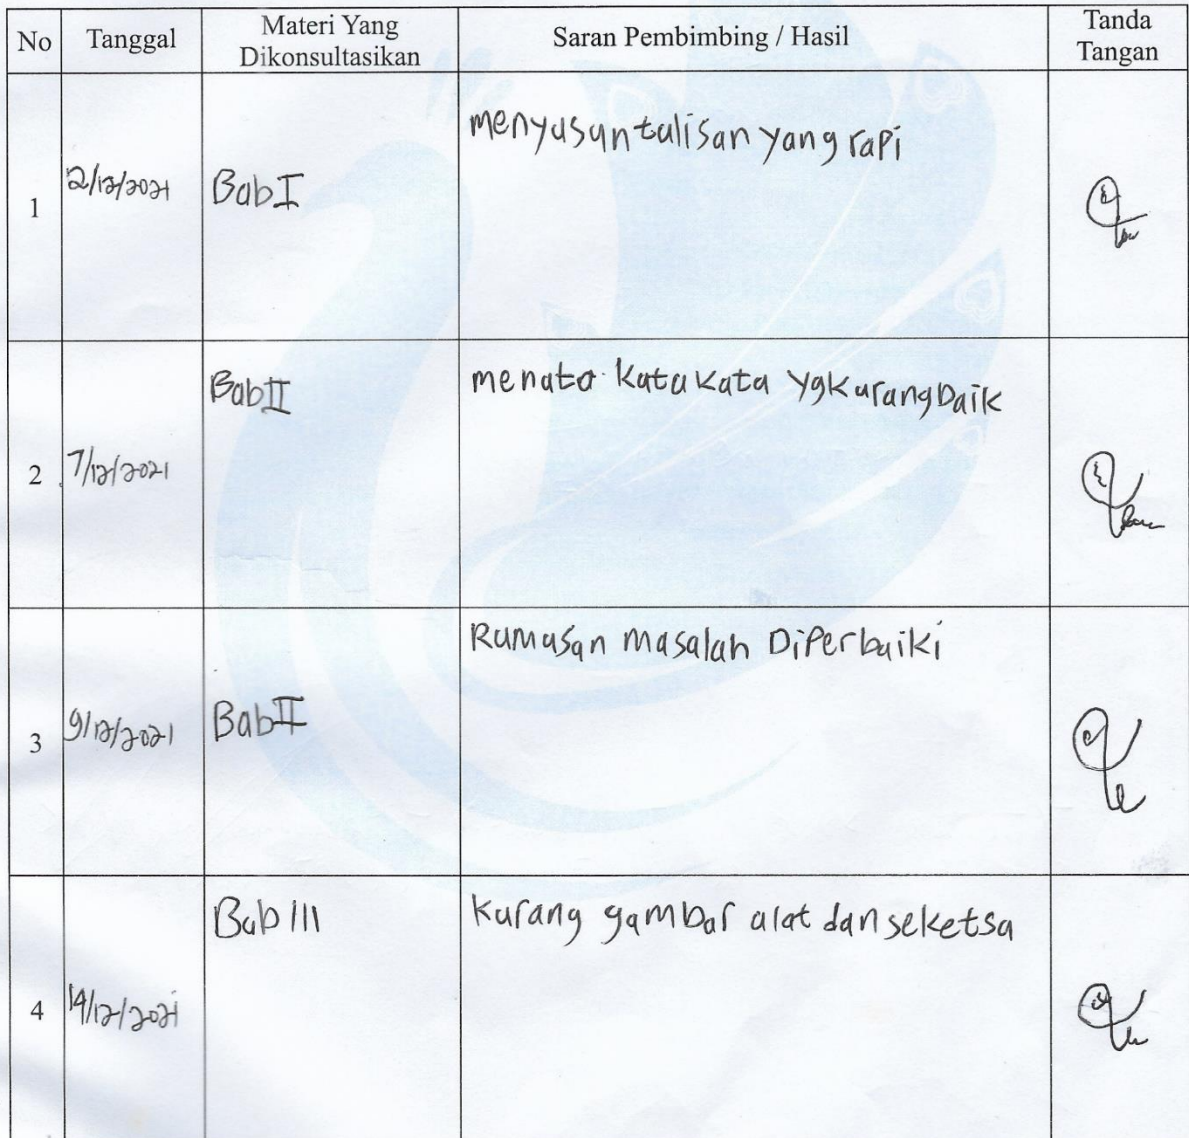 No Tanggal Materi Yang Dikonsultasikan Saran Pembimbing / Hasil Tanda Tangan
1 2/12/2021 Bab I menyusun tulisan yang rapi
2 7/12/2021 Bab II menata kata kata yg kurang baik
3 9/12/2021 Bab II Rumusan masalah Diperbaiki
4 14/12/2021 Bab III kurang gambar alat dan seketsa